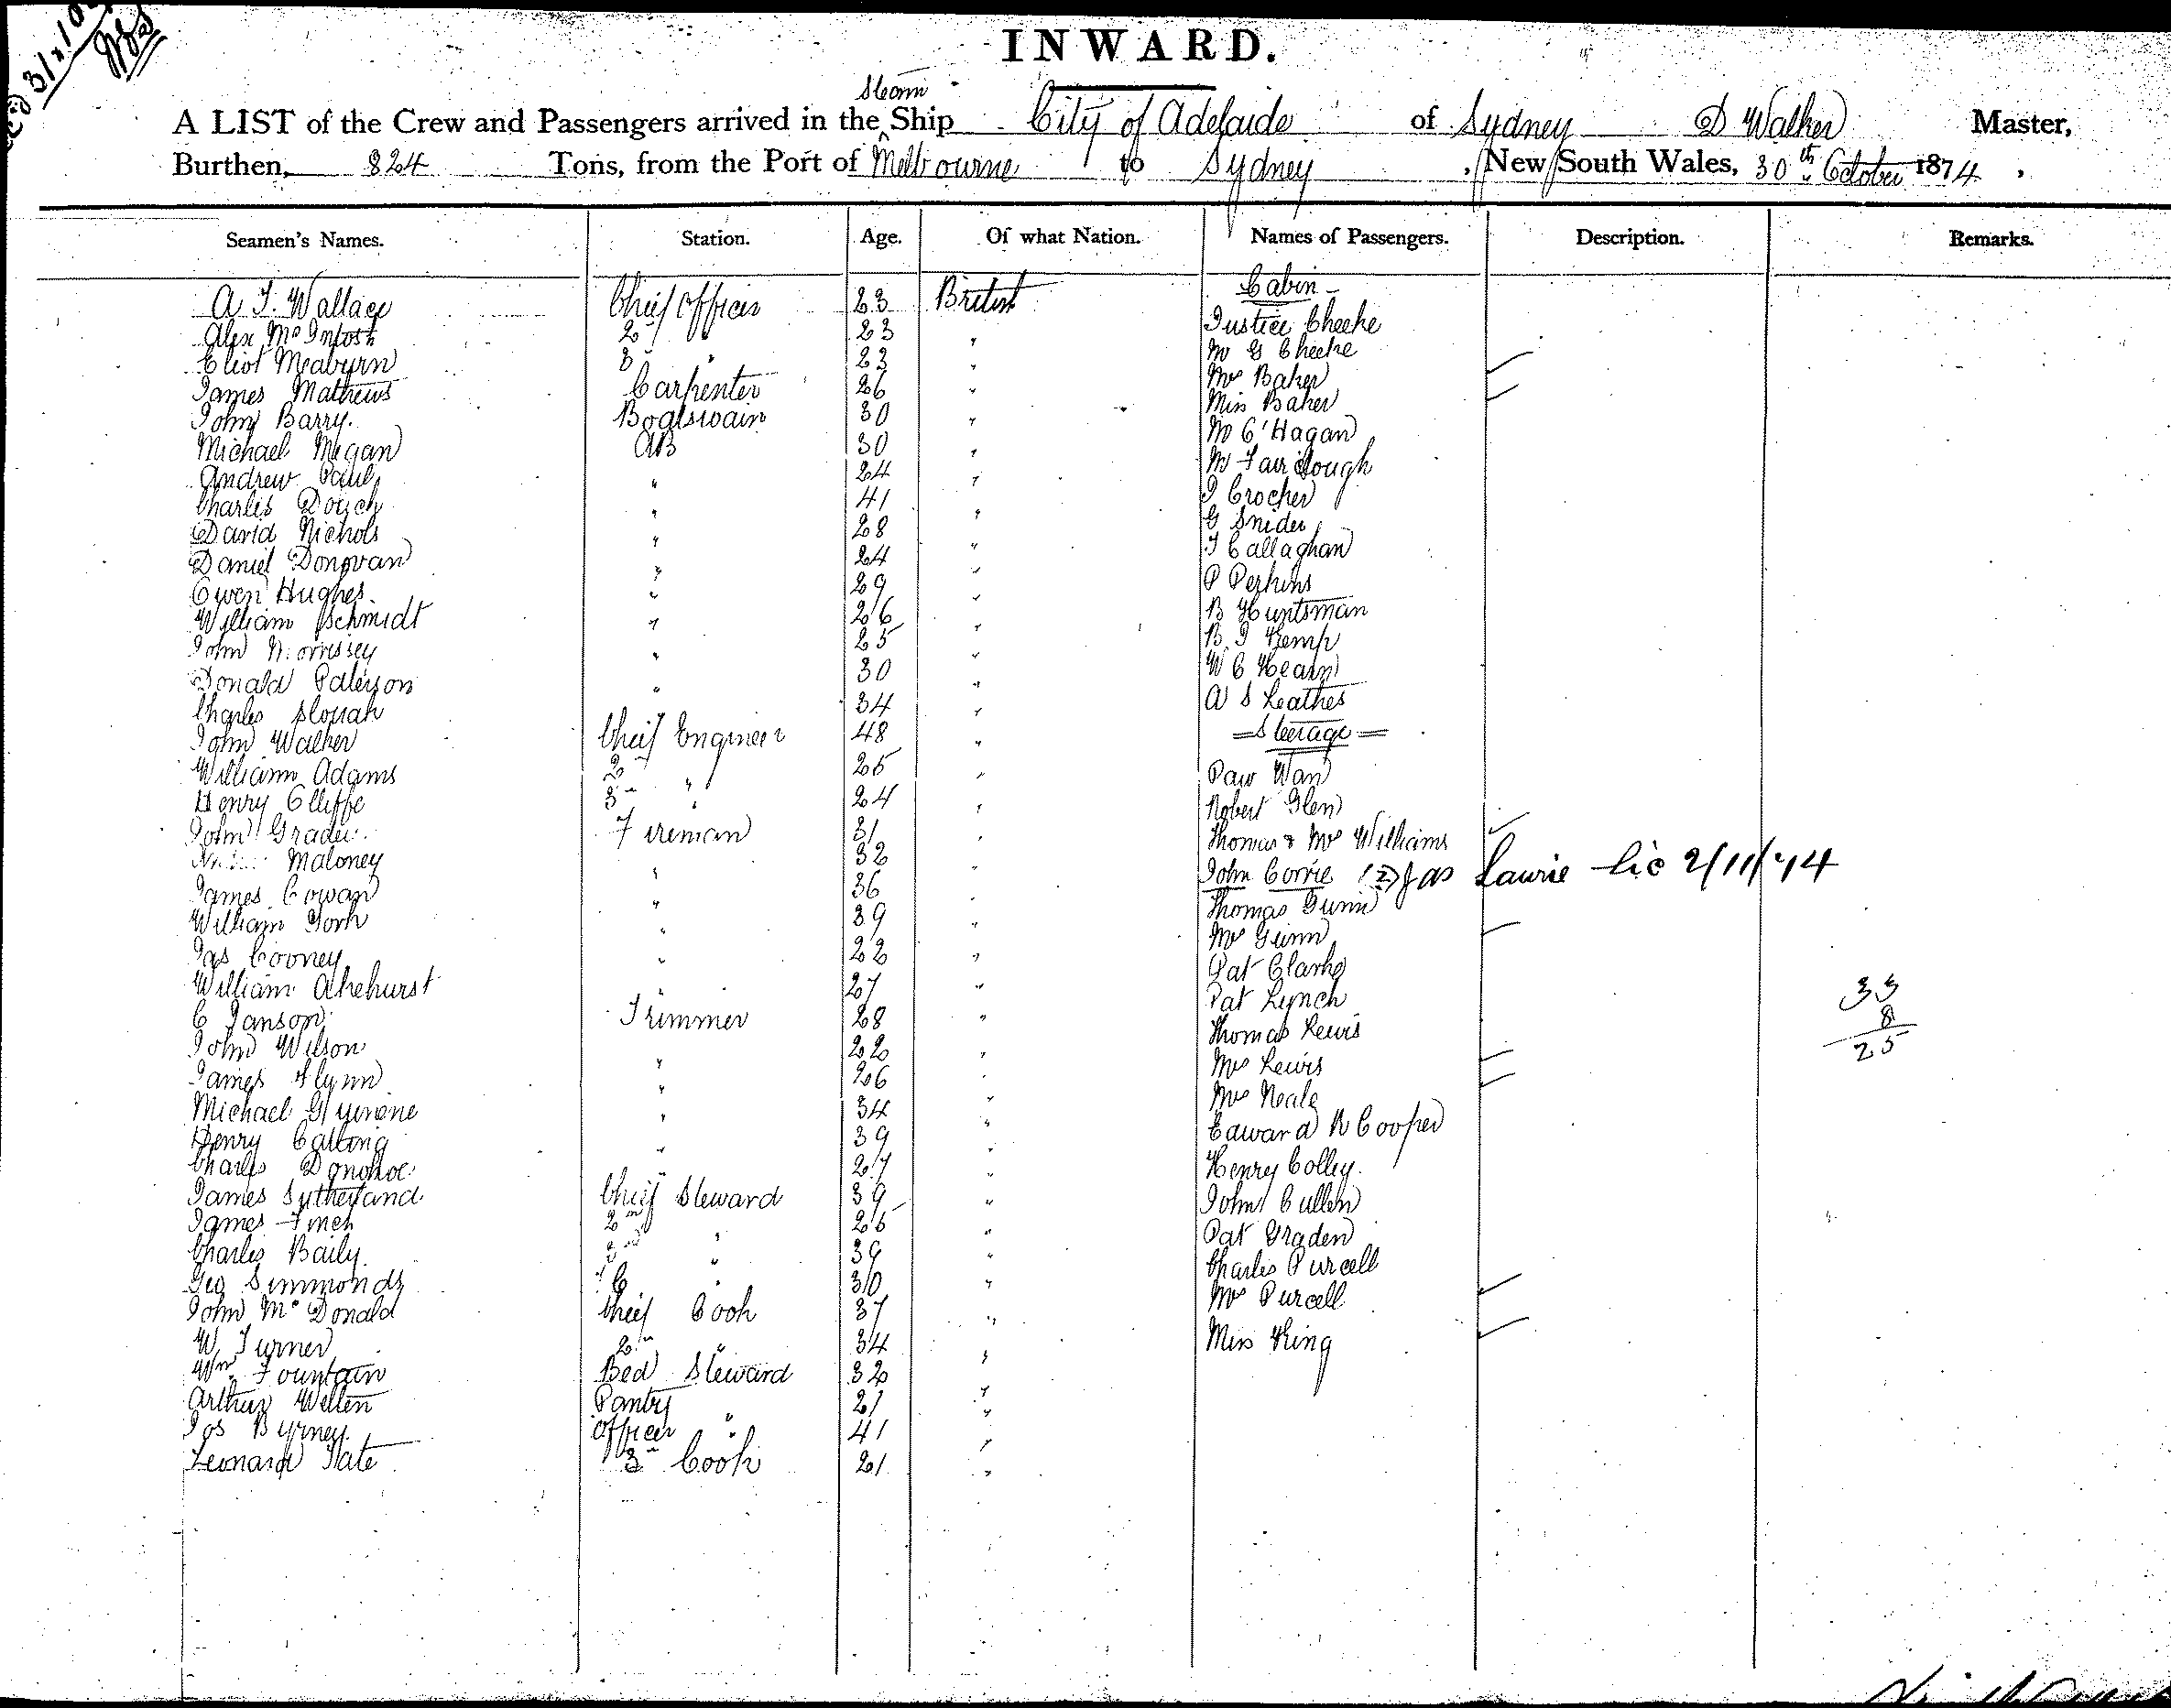 INWARD.
Steam
A LIST of the Crew and Passengers arrived in the Ship City of Adelaide of Sydney D Walker Master,
Burthen, 824 Tons, from the Port of Melbourne to Sydney, New South Wales, 30th October 1874,
Seamen's Names. Station. Age. Of what Nation. Names of Passengers. Description. Remarks.
Cabin
A J. Wallace Chief Officer 23 British
Justice Cheeke
Alex McIntosh 2 " 23 "
Mr G Cheeke
Eliot Meabyrn 3 " 23 "
Mrs Baker
James Mathews Carpenter 26 "
Miss Baker
John Barry. Boatswain 30 "
Mr O'Hagan
Michael Megan AB 30 "
Mr Fairclough
Andrew Paul " 24 "
J Crocker
Charles Douch " 41 "
G Snider
David Nichols " 28 "
J Callaghan
Daniel Donovan " 24 "
P Perkins
Owen Hughes. " 29 "
B Huntsman
William Schmidt " 26 "
B. J Kemp
John Morrissey " 25 "
W C Hearn
Donald Paterson " 30 "
A S Leathes
Charles " 34 "
Steerage
John Walker Chief Engineer 48 "
William Adams 2 " 25 "
Paw Wan
Henry Olliffe 3 " 24 "
Robert Glen
John Grader Fireman 31 "
Thomas & Mrs Williams
Maloney " 32 "
John Corrie (2) as Laurie lic 2/11/74
James Cowan " 36 "
Thomas Gunn
William York " 39 "
Mrs Gunn
Jas Cooney " 22 "
Pat Clarke
William Akehurst " 27 "
Pat Lynch 33
C Janson Trimmer 28 "
Thomas Lewis 8
John Wilson " 22 "
Mrs Lewis 25
James Flynn " 26 "
Mrs Neale
Michael Glynne " 34 "
Edward R Cooper
Henry " 39 "
Henry Colley.
Charles Donohoe " 27 "
James Sutherland Chief Steward 39 "
John Cullen
James Finch 2nd " 25 "
Pat Graden
Charles Baily 3rd " 39 "
Charles Purcell
Geo Simmonds " 30 "
Mrs Purcell
John McDonald Chief Cook 37 "
W Turner 2 " 34 "
Miss King
Wm Fountain Bed Steward 32 "
Arthur Wellen Pantry " 21 "
Jos Byrney. Officer " 41 "
Leonard Tate 3 Cook 21 "